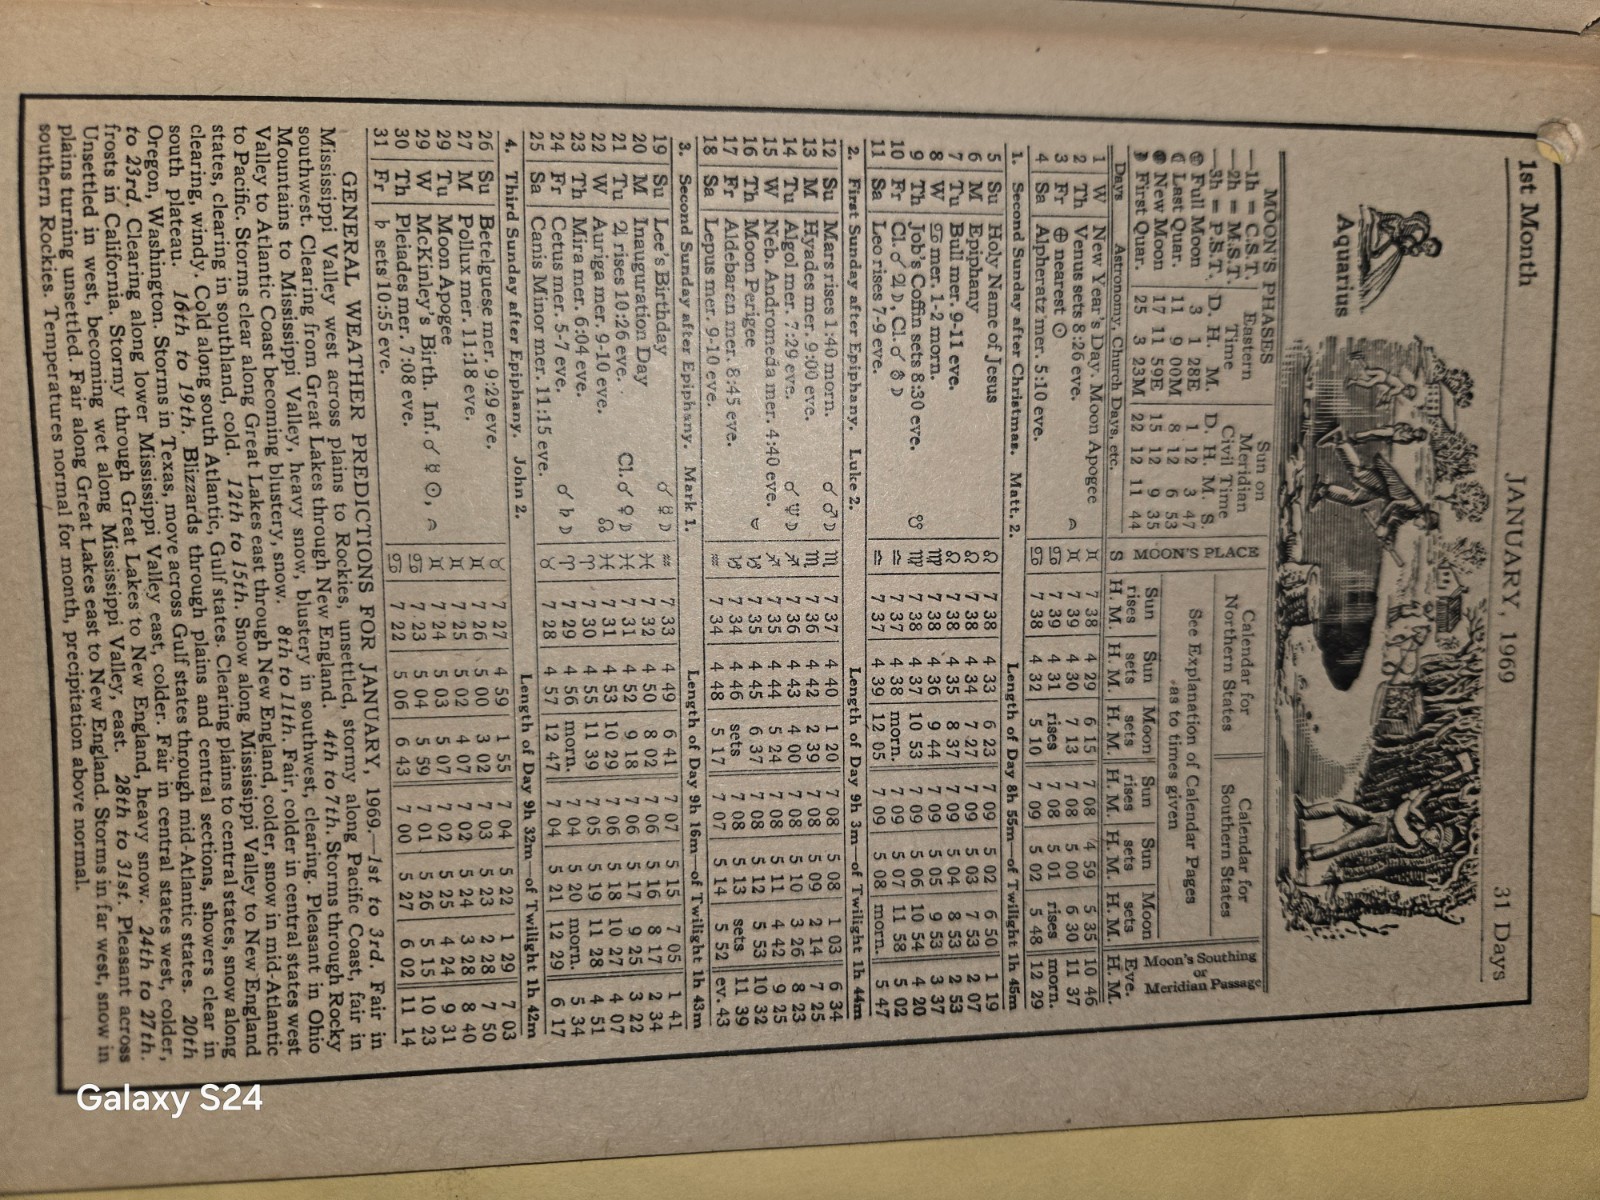 1st Month JANUARY, 1969 31 Days
Aquarius
MOON'S PHASES
—1h = C.S.T.
—2h = M.S.T.
—3h = P.S.T.
Eastern Time
D. H. M.
Sun on Meridian Civil Time
D. H. M. S.
Full Moon 3 1 28E 1 12 3 47
Last Quar. 11 9 00M 8 12 6 53
New Moon 17 11 59E 15 12 9 35
First Quar. 25 3 23M 22 12 11 44
Calendar for Northern States
Calendar for Southern States
See Explanation of Calendar Pages as to times given
Moon's Southing or Meridian Passage
Days Astronomy, Church Days, etc. MOON'S PLACE S Sun rises H. M. Sun sets H. M. Moon sets H. M. Sun rises H. M. Sun sets H. M. Moon sets H. M. Eve. H. M.
1 W New Year's Day. Moon Apogee ♊ 7 38 4 29 6 15 7 08 4 59 5 35 10 46
2 Th Venus sets 8:26 eve. ♊ 7 39 4 30 7 13 7 08 5 00 6 30 11 37
3 Fr ⊕ nearest ☉ ♋ 7 39 4 31 rises 7 08 5 01 rises morn.
4 Sa Alpheratz mer. 5:10 eve. ♋ 7 38 4 32 5 10 7 09 5 02 5 48 12 29
1. Second Sunday after Christmas. Matt. 2. Length of Day 8h 55m—of Twilight 1h 45m
5 Su Holy Name of Jesus ♌ 7 38 4 33 6 23 7 09 5 02 6 50 1 19
6 M Epiphany ♌ 7 38 4 34 7 27 7 09 5 03 7 53 2 07
7 Tu Bull mer. 9-11 eve. ♌ 7 38 4 35 8 37 7 09 5 04 8 53 2 53
8 W ♋ mer. 1-2 morn. ♍ 7 38 4 36 9 44 7 09 5 05 9 53 3 37
9 Th Job's Coffin sets 8:30 eve. ☋ ♍ 7 38 4 37 10 53 7 09 5 06 10 54 4 20
10 Fr Cl. ☌ ♃ ☽, Cl. ☌ ♅ ☽ ♎ 7 37 4 38 morn. 7 09 5 07 11 58 5 02
11 Sa Leo rises 7-9 eve. ♎ 7 37 4 39 12 05 7 09 5 08 morn. 5 47
2. First Sunday after Epiphany. Luke 2. Length of Day 9h 3m—of Twilight 1h 44m
12 Su Mars rises 1:40 morn. ☌ ♂ ☽ ♏ 7 37 4 40 1 20 7 08 5 08 1 03 6 34
13 M Hyades mer. 9:00 eve. ♏ 7 36 4 42 2 39 7 08 5 09 2 14 7 25
14 Tu Algol mer. 7:29 eve. ☌ ♆ ☽ ♐ 7 36 4 43 4 00 7 08 5 10 3 26 8 23
15 W Neb. Andromeda mer. 4:40 eve. ♐ 7 35 4 44 5 24 7 08 5 11 4 42 9 25
16 Th Moon Perigee ♑ 7 35 4 45 6 37 7 08 5 12 5 53 10 32
17 Fr Aldebaran mer. 8:45 eve. ♑ 7 34 4 46 sets 7 08 5 13 sets 11 39
18 Sa Lepus mer. 9-10 eve. ♒ 7 34 4 48 5 17 7 07 5 14 5 52 ev. 43
3. Second Sunday after Epiphany. Mark 1. Length of Day 9h 16m—of Twilight 1h 43m
19 Su Lee's Birthday ☌ ☿ ☽ ♒ 7 33 4 49 6 41 7 07 5 15 7 05 1 41
20 M Inauguration Day ♓ 7 32 4 50 8 02 7 06 5 16 8 17 2 34
21 Tu ♃ rises 10:26 eve. Cl. ☌ ♀ ☽ ♓ 7 31 4 52 9 18 7 06 5 17 9 25 3 22
22 W Auriga mer. 9-10 eve. ☊ ♓ 7 31 4 53 10 29 7 06 5 18 10 27 4 07
23 Th Mira mer. 6:04 eve. ♈ 7 30 4 55 11 39 7 05 5 19 11 28 4 51
24 Fr Cetus mer. 5-7 eve. ☌ ♄ ☽ ♈ 7 29 4 56 morn. 7 04 5 20 morn. 5 34
25 Sa Canis Minor mer. 11:15 eve. ♉ 7 28 4 57 12 47 7 04 5 21 12 29 6 17
4. Third Sunday after Epiphany. John 2. Length of Day 9h 32m—of Twilight 1h 42m
26 Su Betelguese mer. 9:29 eve. ♉ 7 27 4 59 1 55 7 04 5 22 1 29 7 03
27 M Pollux mer. 11:18 eve. ♊ 7 26 5 00 3 02 7 03 5 23 2 28 7 50
29 Tu Moon Apogee ♊ 7 25 5 02 4 07 7 02 5 24 3 28 8 40
29 W McKinley's Birth. Inf. ☌ ☿ ☉, ♊ 7 24 5 03 5 07 7 02 5 25 4 24 9 31
30 Th Pleiades mer. 7:08 eve. ♋ 7 23 5 04 5 59 7 01 5 26 5 15 10 23
31 Fr ♄ sets 10:55 eve. ♋ 7 22 5 06 6 43 7 00 5 27 6 02 11 14
GENERAL WEATHER PREDICTIONS FOR JANUARY, 1969.—1st to 3rd. Fair in
Mississippi Valley west across plains to Rockies, unsettled, stormy along Pacific Coast, fair in
southwest. Clearing from Great Lakes through New England. 4th to 7th. Storms through Rocky
Mountains to Mississippi Valley, heavy snow, blustery in southwest, clearing. Pleasant in Ohio
Valley to Atlantic Coast becoming blustery, snow. 8th to 11th. Fair, colder in central states west
to Pacific. Storms clear along Great Lakes east through New England, colder, snow in mid-Atlantic
states, clearing in southland, cold. 12th to 15th. Snow along Mississippi Valley to New England
clearing, windy. Cold along south Atlantic, Gulf states. Clearing plains to central states, snow along
south plateau. 16th to 19th. Blizzards through plains and central sections, showers clear in
Oregon, Washington. Storms in Texas, move across Gulf states through mid-Atlantic states. 20th
to 23rd. Clearing along lower Mississippi Valley east, colder. Fair in central states west, colder,
frosts in California. Stormy through Great Lakes to New England, heavy snow. 24th to 27th.
Unsettled in west, becoming wet along Mississippi Valley, east. 28th to 31st. Pleasant across
plains turning unsettled. Fair along Great Lakes east to New England. Storms in far west, snow in
southern Rockies. Temperatures normal for month, precipitation above normal.
Galaxy S24